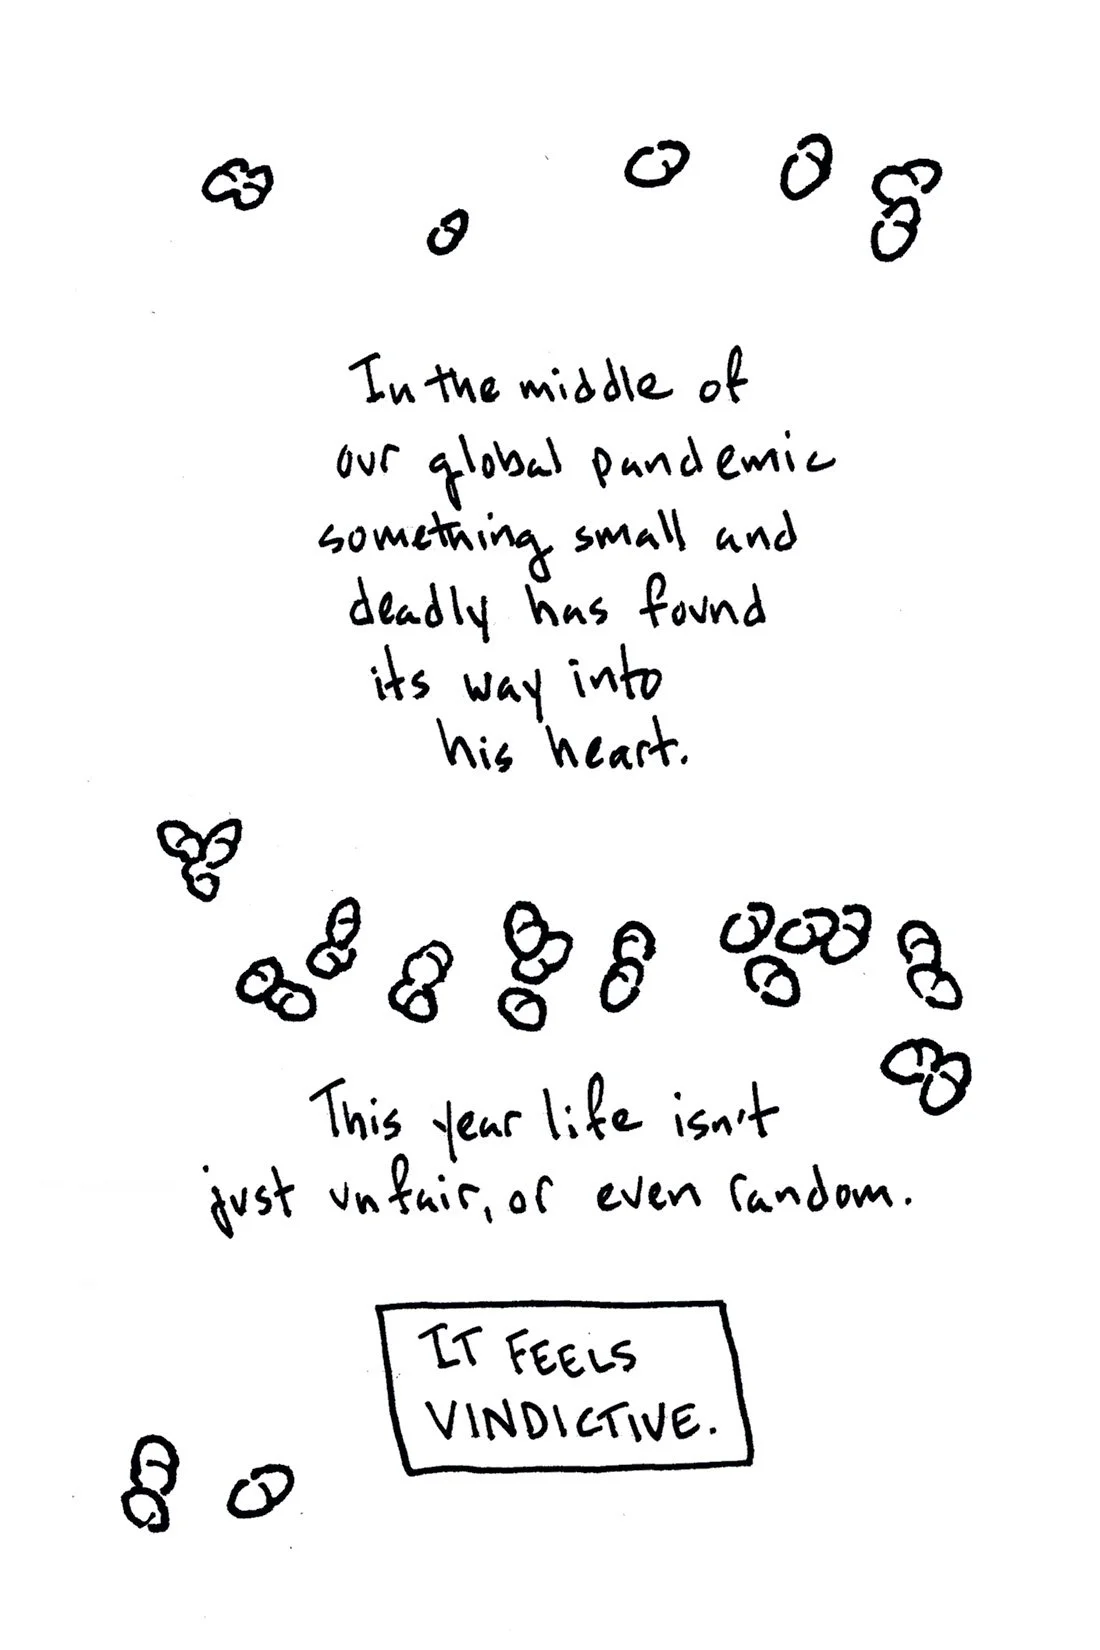 In the middle of
our global pandemic
something small and
deadly has found
its way into
his heart.
This year life isn't
just unfair, or even random.
IT FEELS
VINDICTIVE.